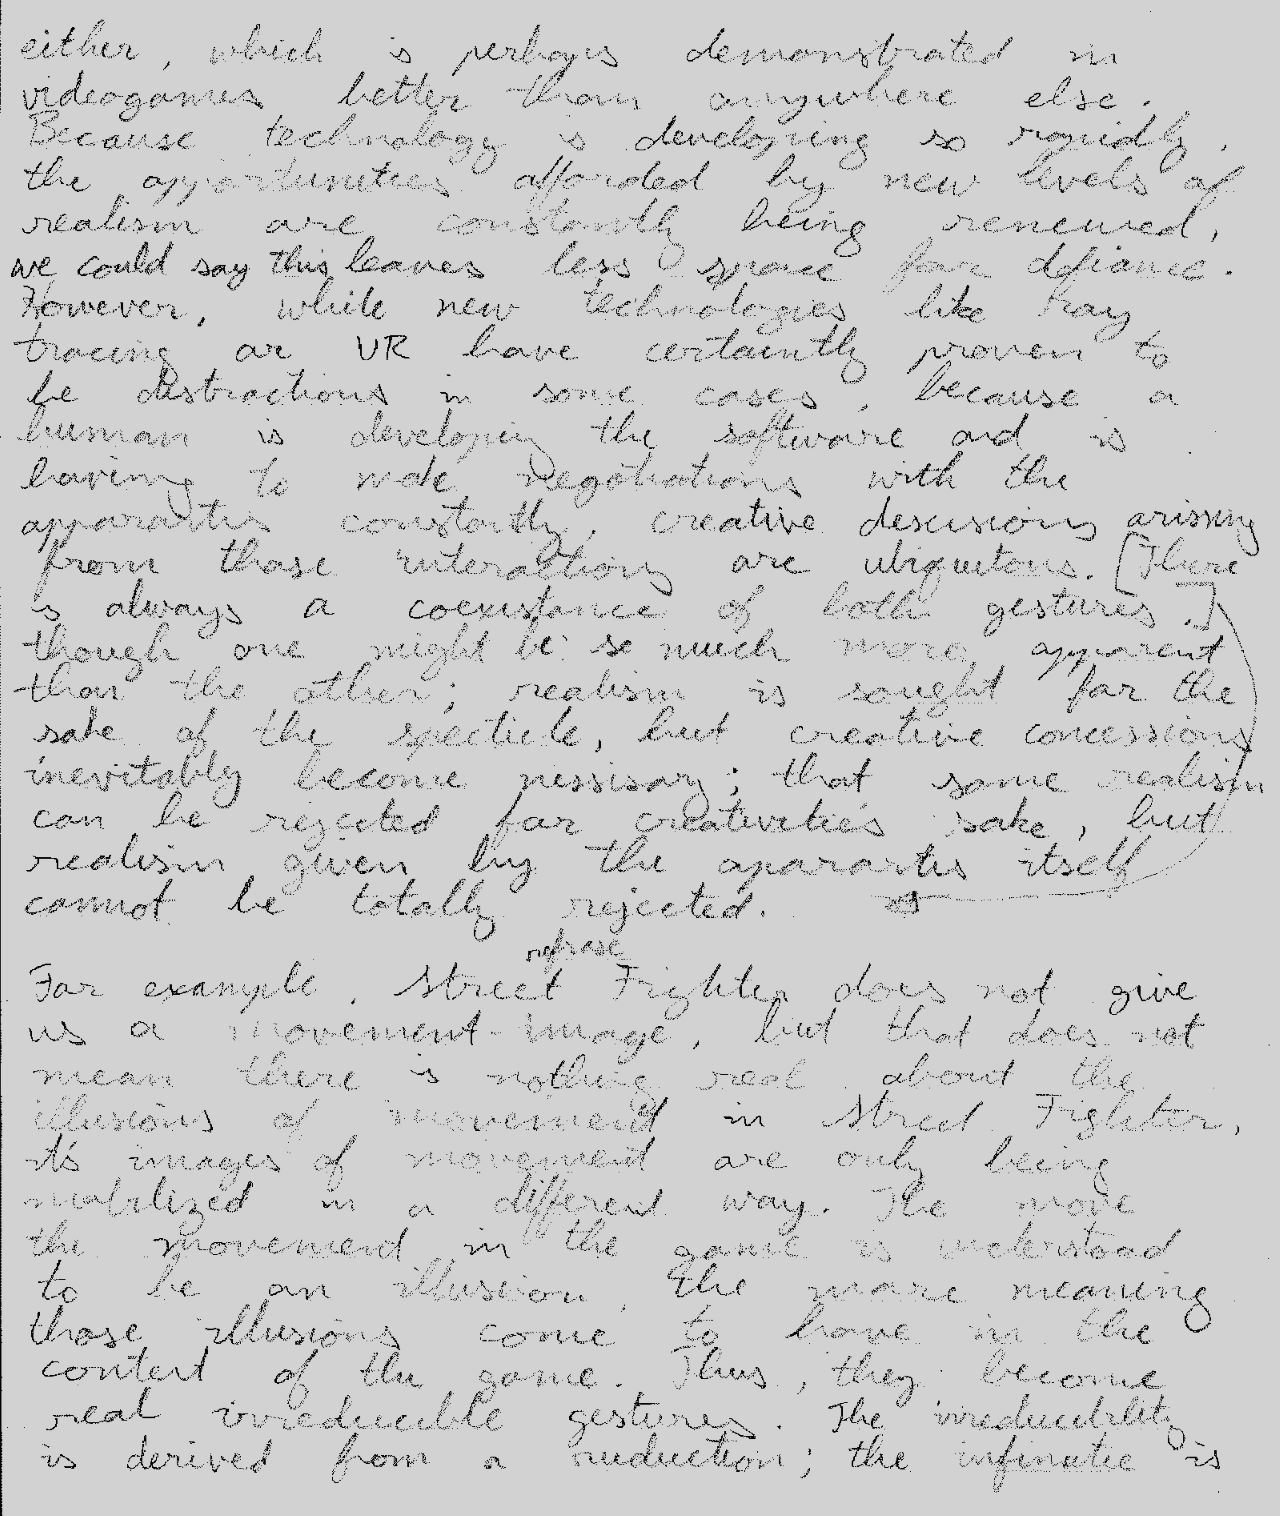 either, which is perhaps demonstrated in
videogames better than anywhere else.
Because technology is developing so rapidly,
the opportunities afforded by new levels of
realism are constantly being renewed,
we could say this leaves less space for defiance.
However, while new technologies like Ray
tracing or VR have certaintly proven to
be distractions in some cases, because a
human is developing the software and is
having to make negotiations with the
apparartis constantly, creative descisions arissing
from those interactions are ubiquitous. [There
is always a coexistance of both gestures.]
though one might be so much more apparent
than the other; realism is sought for the
sake of the specticle, but creative concessions
inevitably become nessisary; that same realism
can be rejected for creativities sake, but
realism given by the aparartis itself
cannot be totally rejected.
refrase
For example, Street Fighter does not give
us a movement-image, but that does not
mean there is nothing real about the
illusions of movement in Street Fighter,
it's images of movement are only being
mobilized in a different way. The more
the movement in the game is understood
to be an illusion, the more meaning
those illusions come to have in the
context of the game. Thus, they become
real irreducible gestures. The irreducibility
is derived from a reduction; the infinatie is